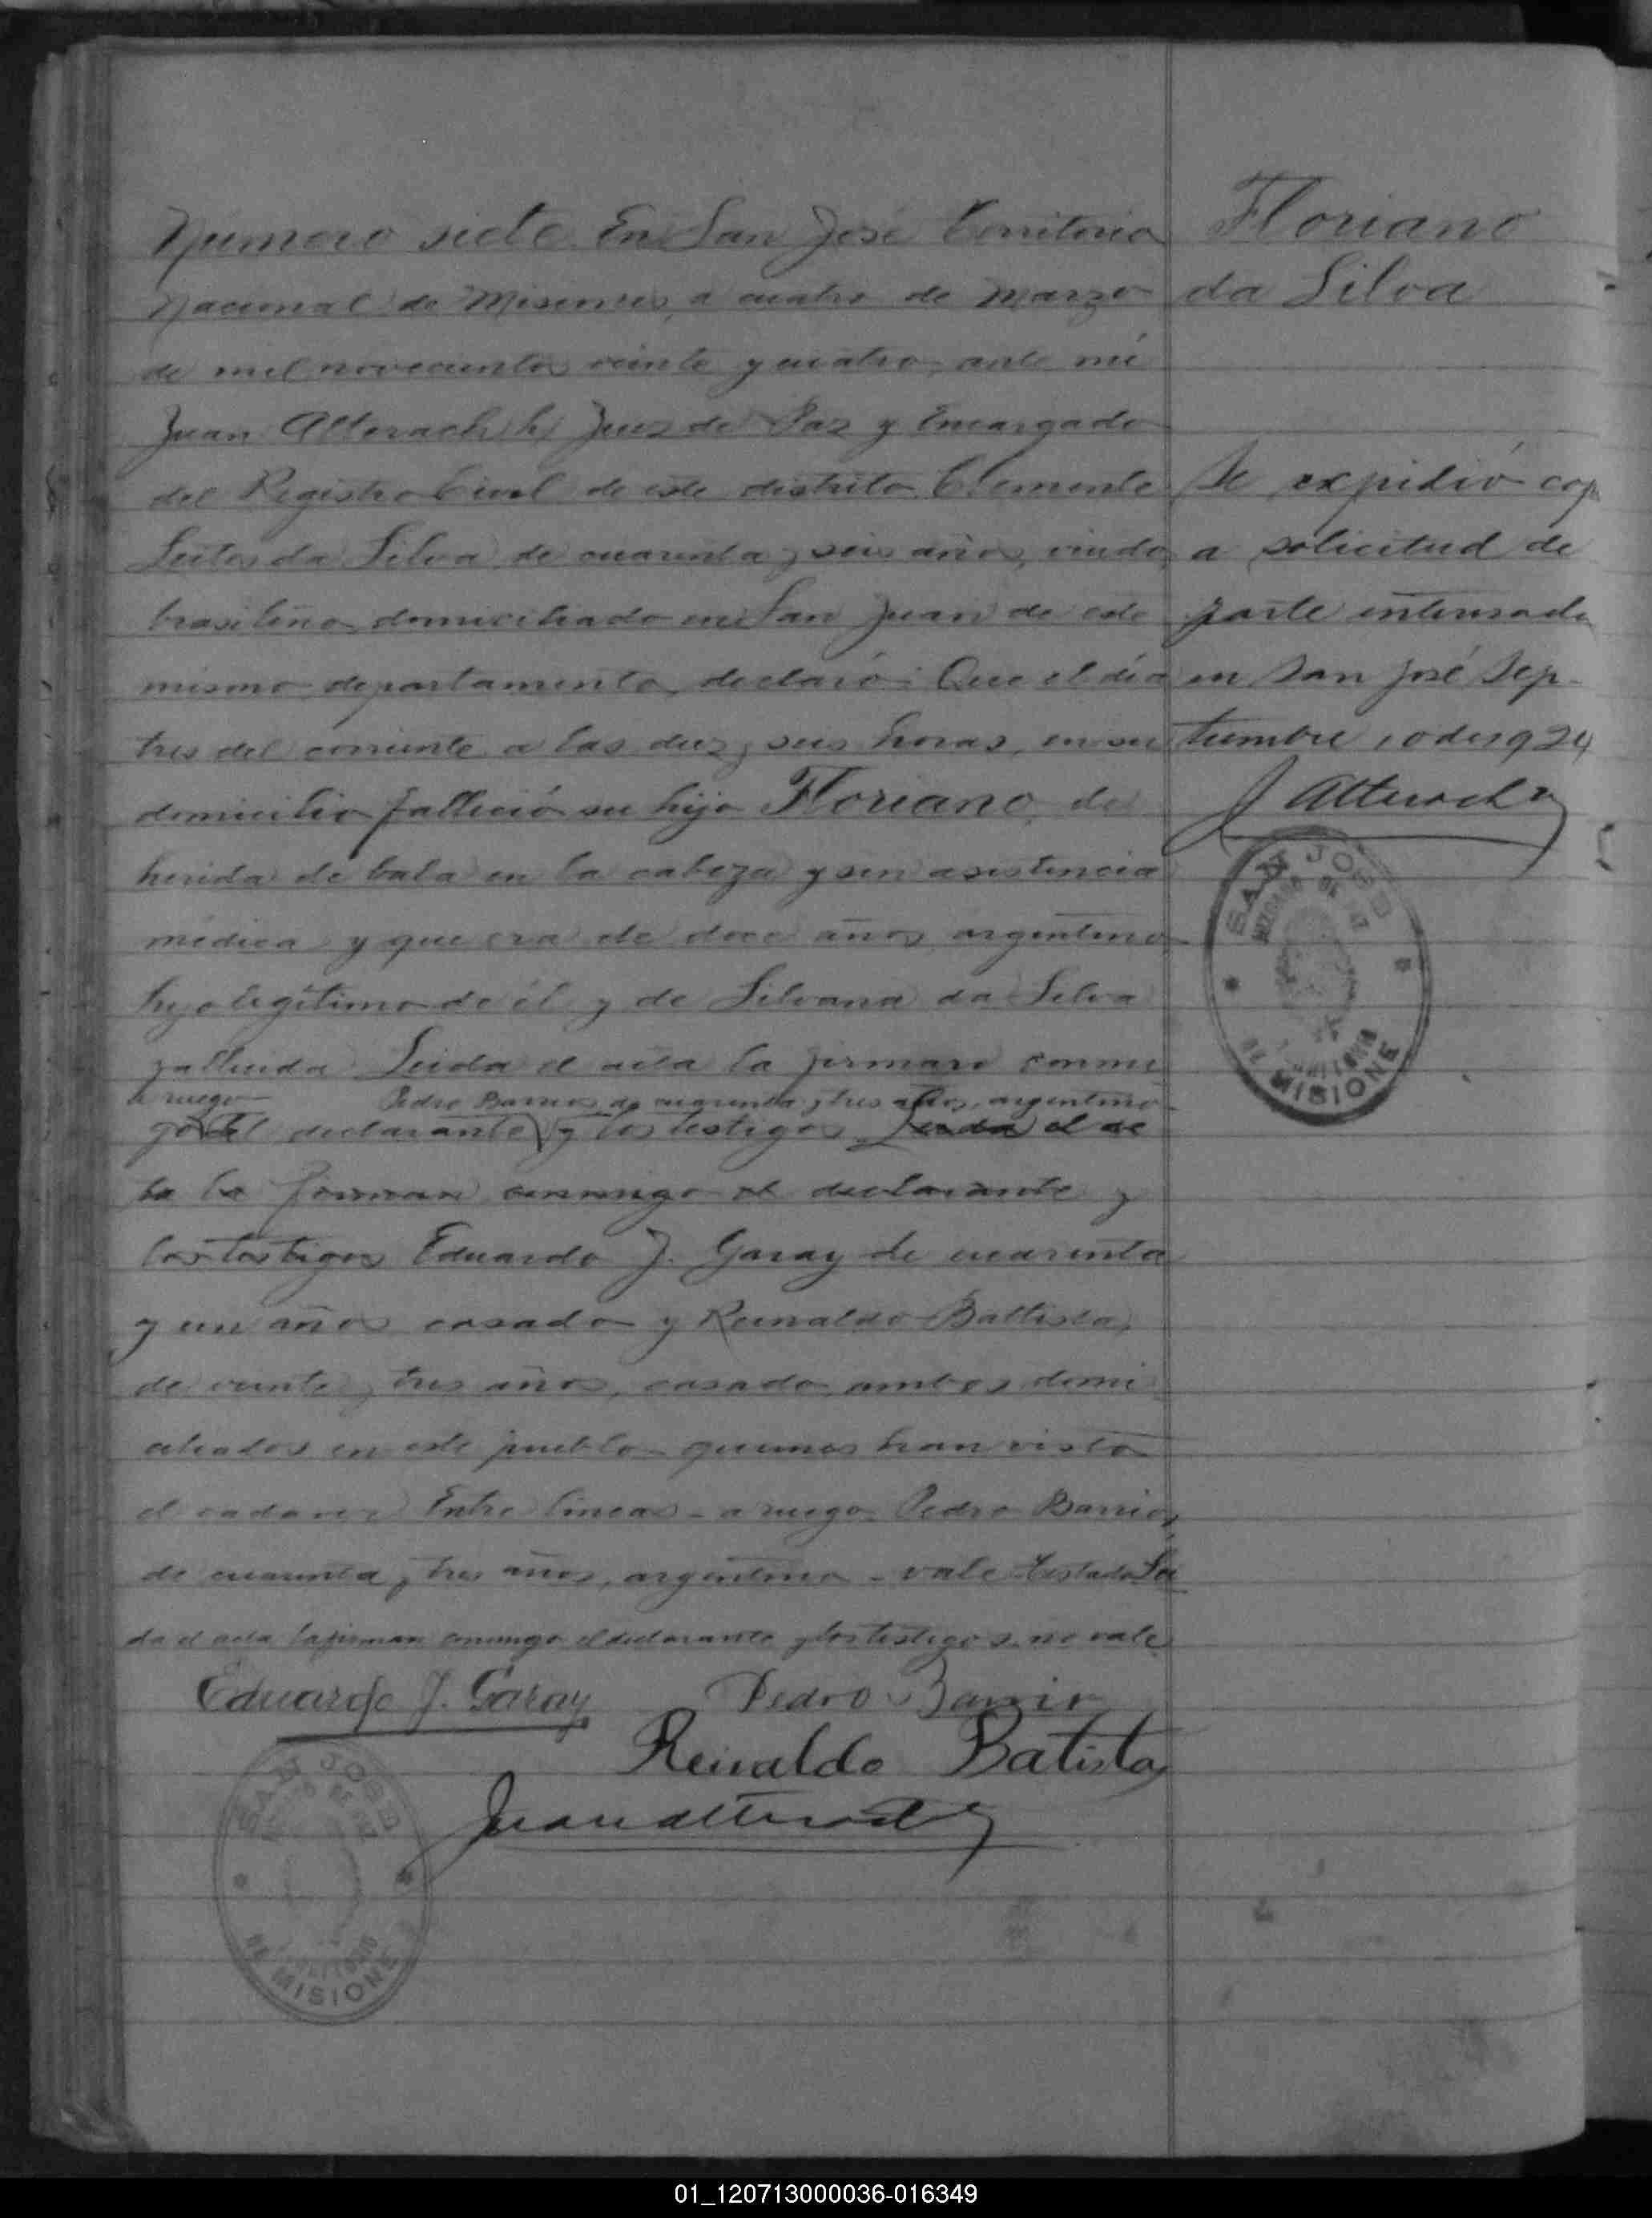 Número siete En San José Territorio
Nacional de Misiones, a cuatro de Marzo
de mil novecientos veinte y cuatro, ante mí
Juan Alterach h) Juez de Paz y Encargado
del Registro Civil de este distrito Clemente
Leites da Silva, de cuarenta y seis años, viudo,
brasileño, domiciliado en San Juan de este
mismo departamento, declaró: Que el día
tres del corriente a las diez y seis horas, en su
domicilio falleció su hijo Floriano, de
herida de bala en la cabeza y sin asistencia
médica y que era de doce años, argentino,
hijo legítimo de él y de Silvana da Silva
fallecida Leida el acta la firmaro conmi
a ruego Pedro Barrios de cuarenta y tres años, argentino
go del declarante y los testigos Leida el ac
ta la firman conmigo el declarante y
los testigos Eduardo J. Garay de cuarenta
y un años casado y Reinaldo Battista,
de veinte y tres años, casado, ambos domi
ciliados en este pueblo quienes han visto
el cadaver Entre lineas - a ruego Pedro Barrios,
de cuarenta y tres años, argentino - vale testado Lei
da el acta la firman conmigo el declarante y los testigos no vale
Eduardo J. Garay Pedro Barrio
Reinaldo Batista
Juan Alterach
SAN JOSE
DE MISIONE
Floriano
da Silva
Se expidió cop
a solicitud de
parte interesada
en San José Sep-
tiembre 10 de 1924
J Alterach
SAN JOSE
JUZGADO DE PAZ
DE MISIONE
01_120713000036-016349